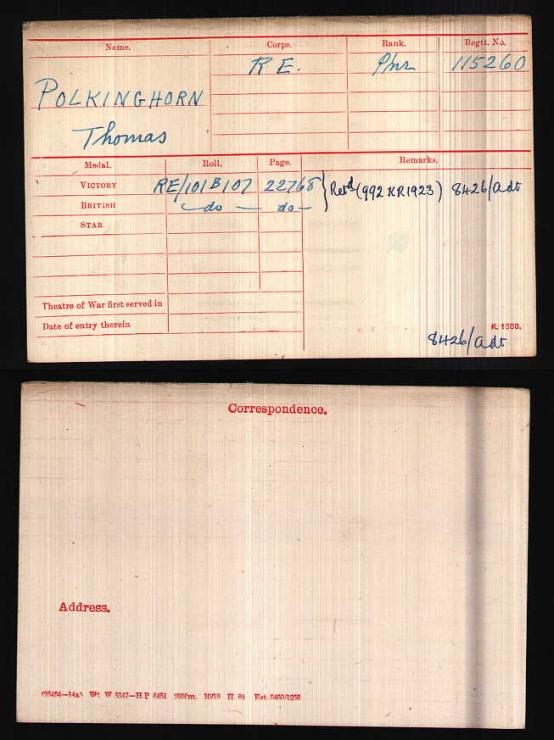 Name. Corps. Rank. Regtl. No.
R E. Pnr 115260
POLKINGHORN
Thomas
Medal. Roll. Page. Remarks.
VICTORY RE/101B107 22768 } Retd (992 KR1923) 8426/Adt
BRITISH do do
STAR
Theatre of War first served in
Date of entry therein
K. 1380.
8426/Adt
Correspondence.
Address.
W 3347—H.P. 200m. 10/19 H. St